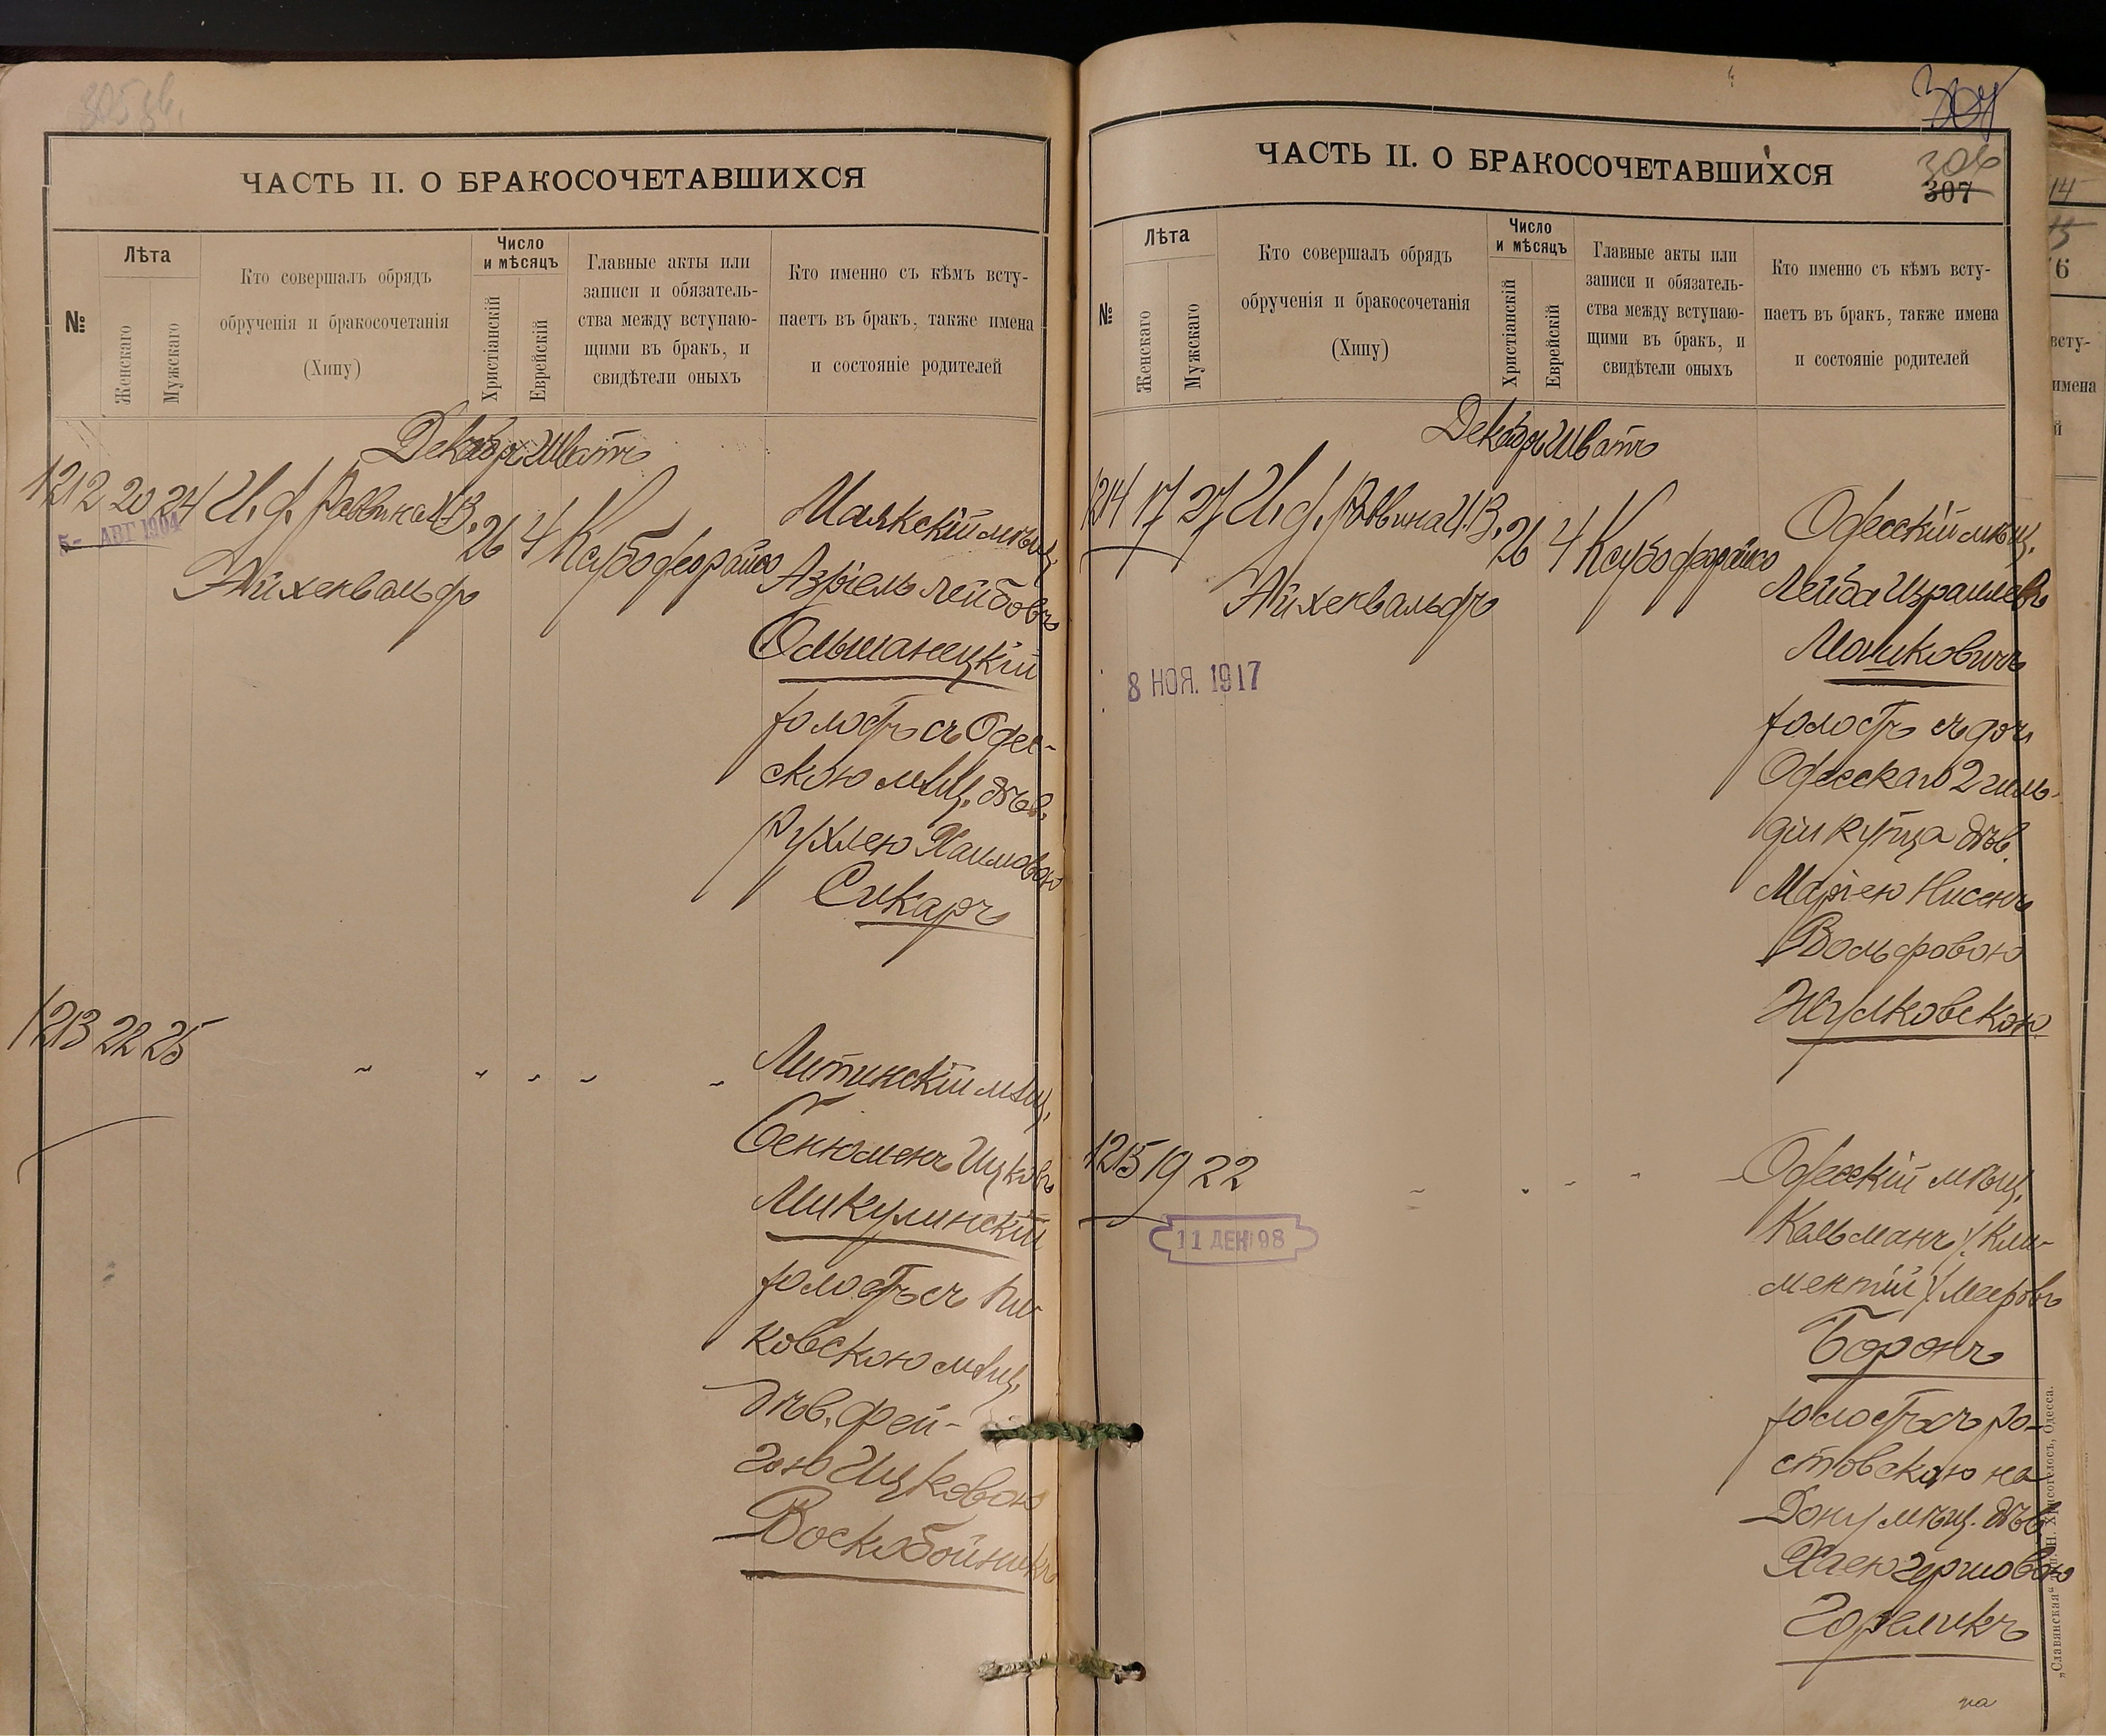 305 зв.
ЧАСТЬ II. О БРАКОСОЧЕТАВШИХСЯ
№
Лѣта
Женскаго
Мужскаго
Кто совершалъ обрядъ
обрученія и бракосочетанія
(Хипу)
Число
и мѣсяцъ
Христіанскій
Еврейскій
Главные акты или
записи и обязатель-
ства между вступаю-
щими въ бракъ, и
свидѣтели оныхъ
Кто именно съ кѣмъ всту-
паетъ въ бракъ, также имена
и состояніе родителей
Декабр. Шватъ
1212 20 24 И. ф. Раввина Х.В. 26 4 Ксубо деорайсо Маякскій мѣщ.
5- АВГ 1904
Эйхенвальф Азріель Лейбовъ
Ольшанецкій
холостъ съ Одес-
скою мѣщ. дѣв.
Рухлею Хаимовою
Сикаръ
1213 22 25 Литинскій мѣщ.
Бенюменъ Ицковъ
Микулинскій
холостъ съ Пи-
ковскою мѣщ.
дѣв. Фей-
гою Ицковою
Воскобойникъ
307
306
307
ЧАСТЬ II. О БРАКОСОЧЕТАВШИХСЯ
№
Лѣта
Женскаго
Мужскаго
Кто совершалъ обрядъ
обрученія и бракосочетанія
(Хипу)
Число
и мѣсяцъ
Христіанскій
Еврейскій
Главные акты или
записи и обязатель-
ства между вступаю-
щими въ бракъ, и
свидѣтели оныхъ
Кто именно съ кѣмъ всту-
паетъ въ бракъ, также имена
и состояніе родителей
Декабр. Шватъ
1214 17 27 И. ф. Раввина Х.В. 26 4 Ксубо деорайсо Одесскій мѣщ.
Эйхенвальфъ Лейба Израилевъ
8 НОЯ. 1917
Машковичъ
холостъ съ доч.
Одесскаго 2 гиль-
діи купца дѣв.
Маріею Нисенъ
Вольфовою
Жулковскою
1215 19 22 Одесскій мѣщ.
11 ДЕК 98
Кальманъ /: Кли-
ментій :/ Мееровъ
Боронъ
холостъ съ Ро-
стовскою на
Дону мѣщ. дѣв.
Хаею Гершовою
Горѣликъ